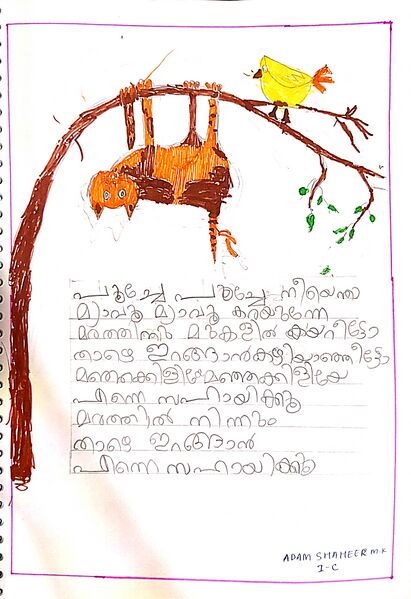 പൂച്ചേ പൂച്ചേ നീയെന്താ
മ്യാവൂ മ്യാവൂ കരയുന്നേ
മരത്തിനും മുകളിൽ കയറീട്ടോ
താഴെ ഇറങ്ങാൻകഴിയാഞ്ഞിട്ടോ
മഞ്ഞക്കിളിയേമഞ്ഞക്കിളിയേ
എന്നെ സഹായിക്കൂ
മരത്തിൽ നിന്നും
താഴെ ഇറങ്ങാൻ
എന്നെ സഹായിക്കൂ
ADAM SHAHEER M.K
I-C